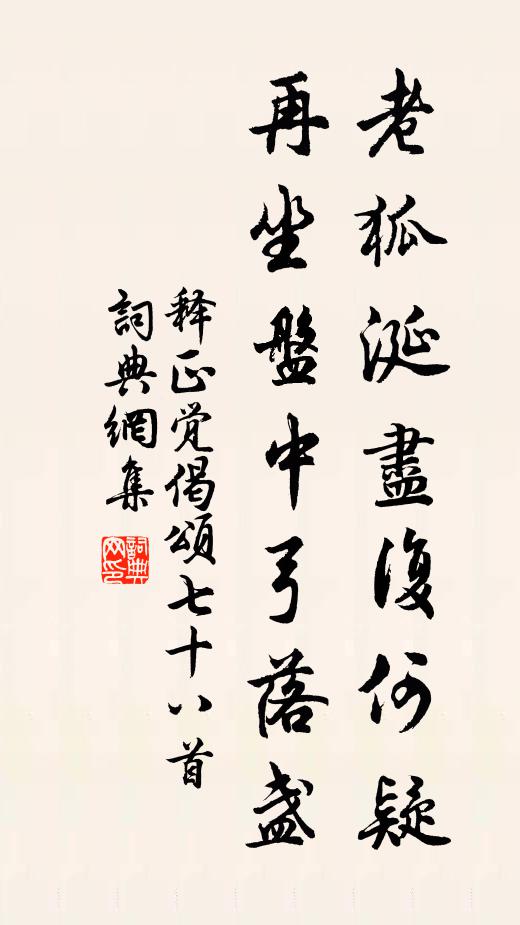 老狐涎盡復何疑
再坐盤中弓落盞
释正觉偈颂七十八首
詞典網集
詞典网印